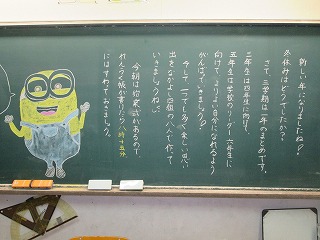 新しい年になりましたね!
冬休みはどうでしたか?
さて、三学期は一年のまとめです。
三年生は四年生に向けて、
五年生は学校のリーダー六年生に
向けて、よりよい自分になれるよう
がんばっていきましょう!
そして、一つでも多く楽しい思い
出をなかよし四組の八人で作って
いきましょうね。
今朝は始業式があるので
れんらく帳が書けたら八時十五分
にはすわっておきましょう。